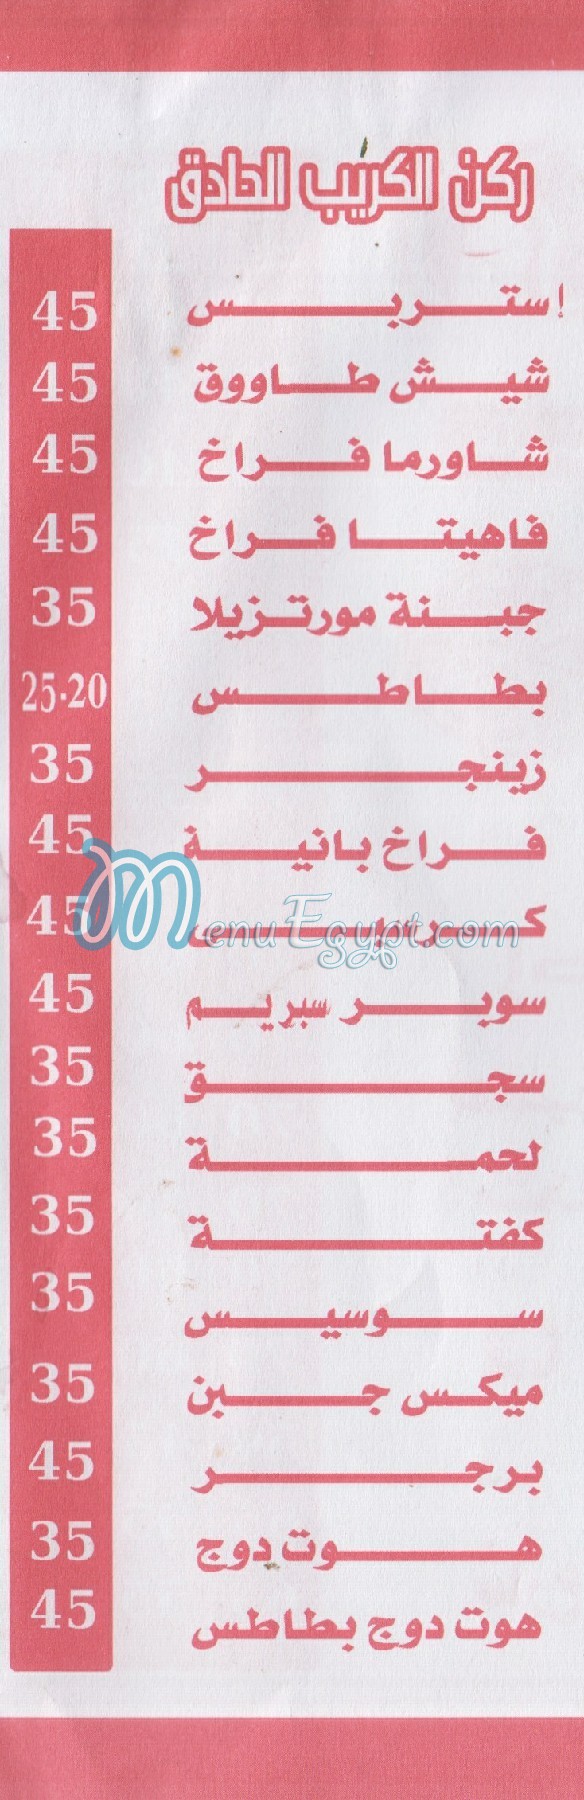 ركن الكريب الحادق
إستربس 45
شيش طاووق 45
شاورما فراخ 45
فاهيتا فراخ 45
جبنة مورتزيلا 35
بطاطس 20-25
زينجر 35
فراخ بانية 45
45
MenuEgypt.com
سوبر سبريم 45
سجق 35
لحمة 35
كفتة 35
سوسيس 35
ميكس جبن 35
برجر 45
هوت دوج 35
هوت دوج بطاطس 45